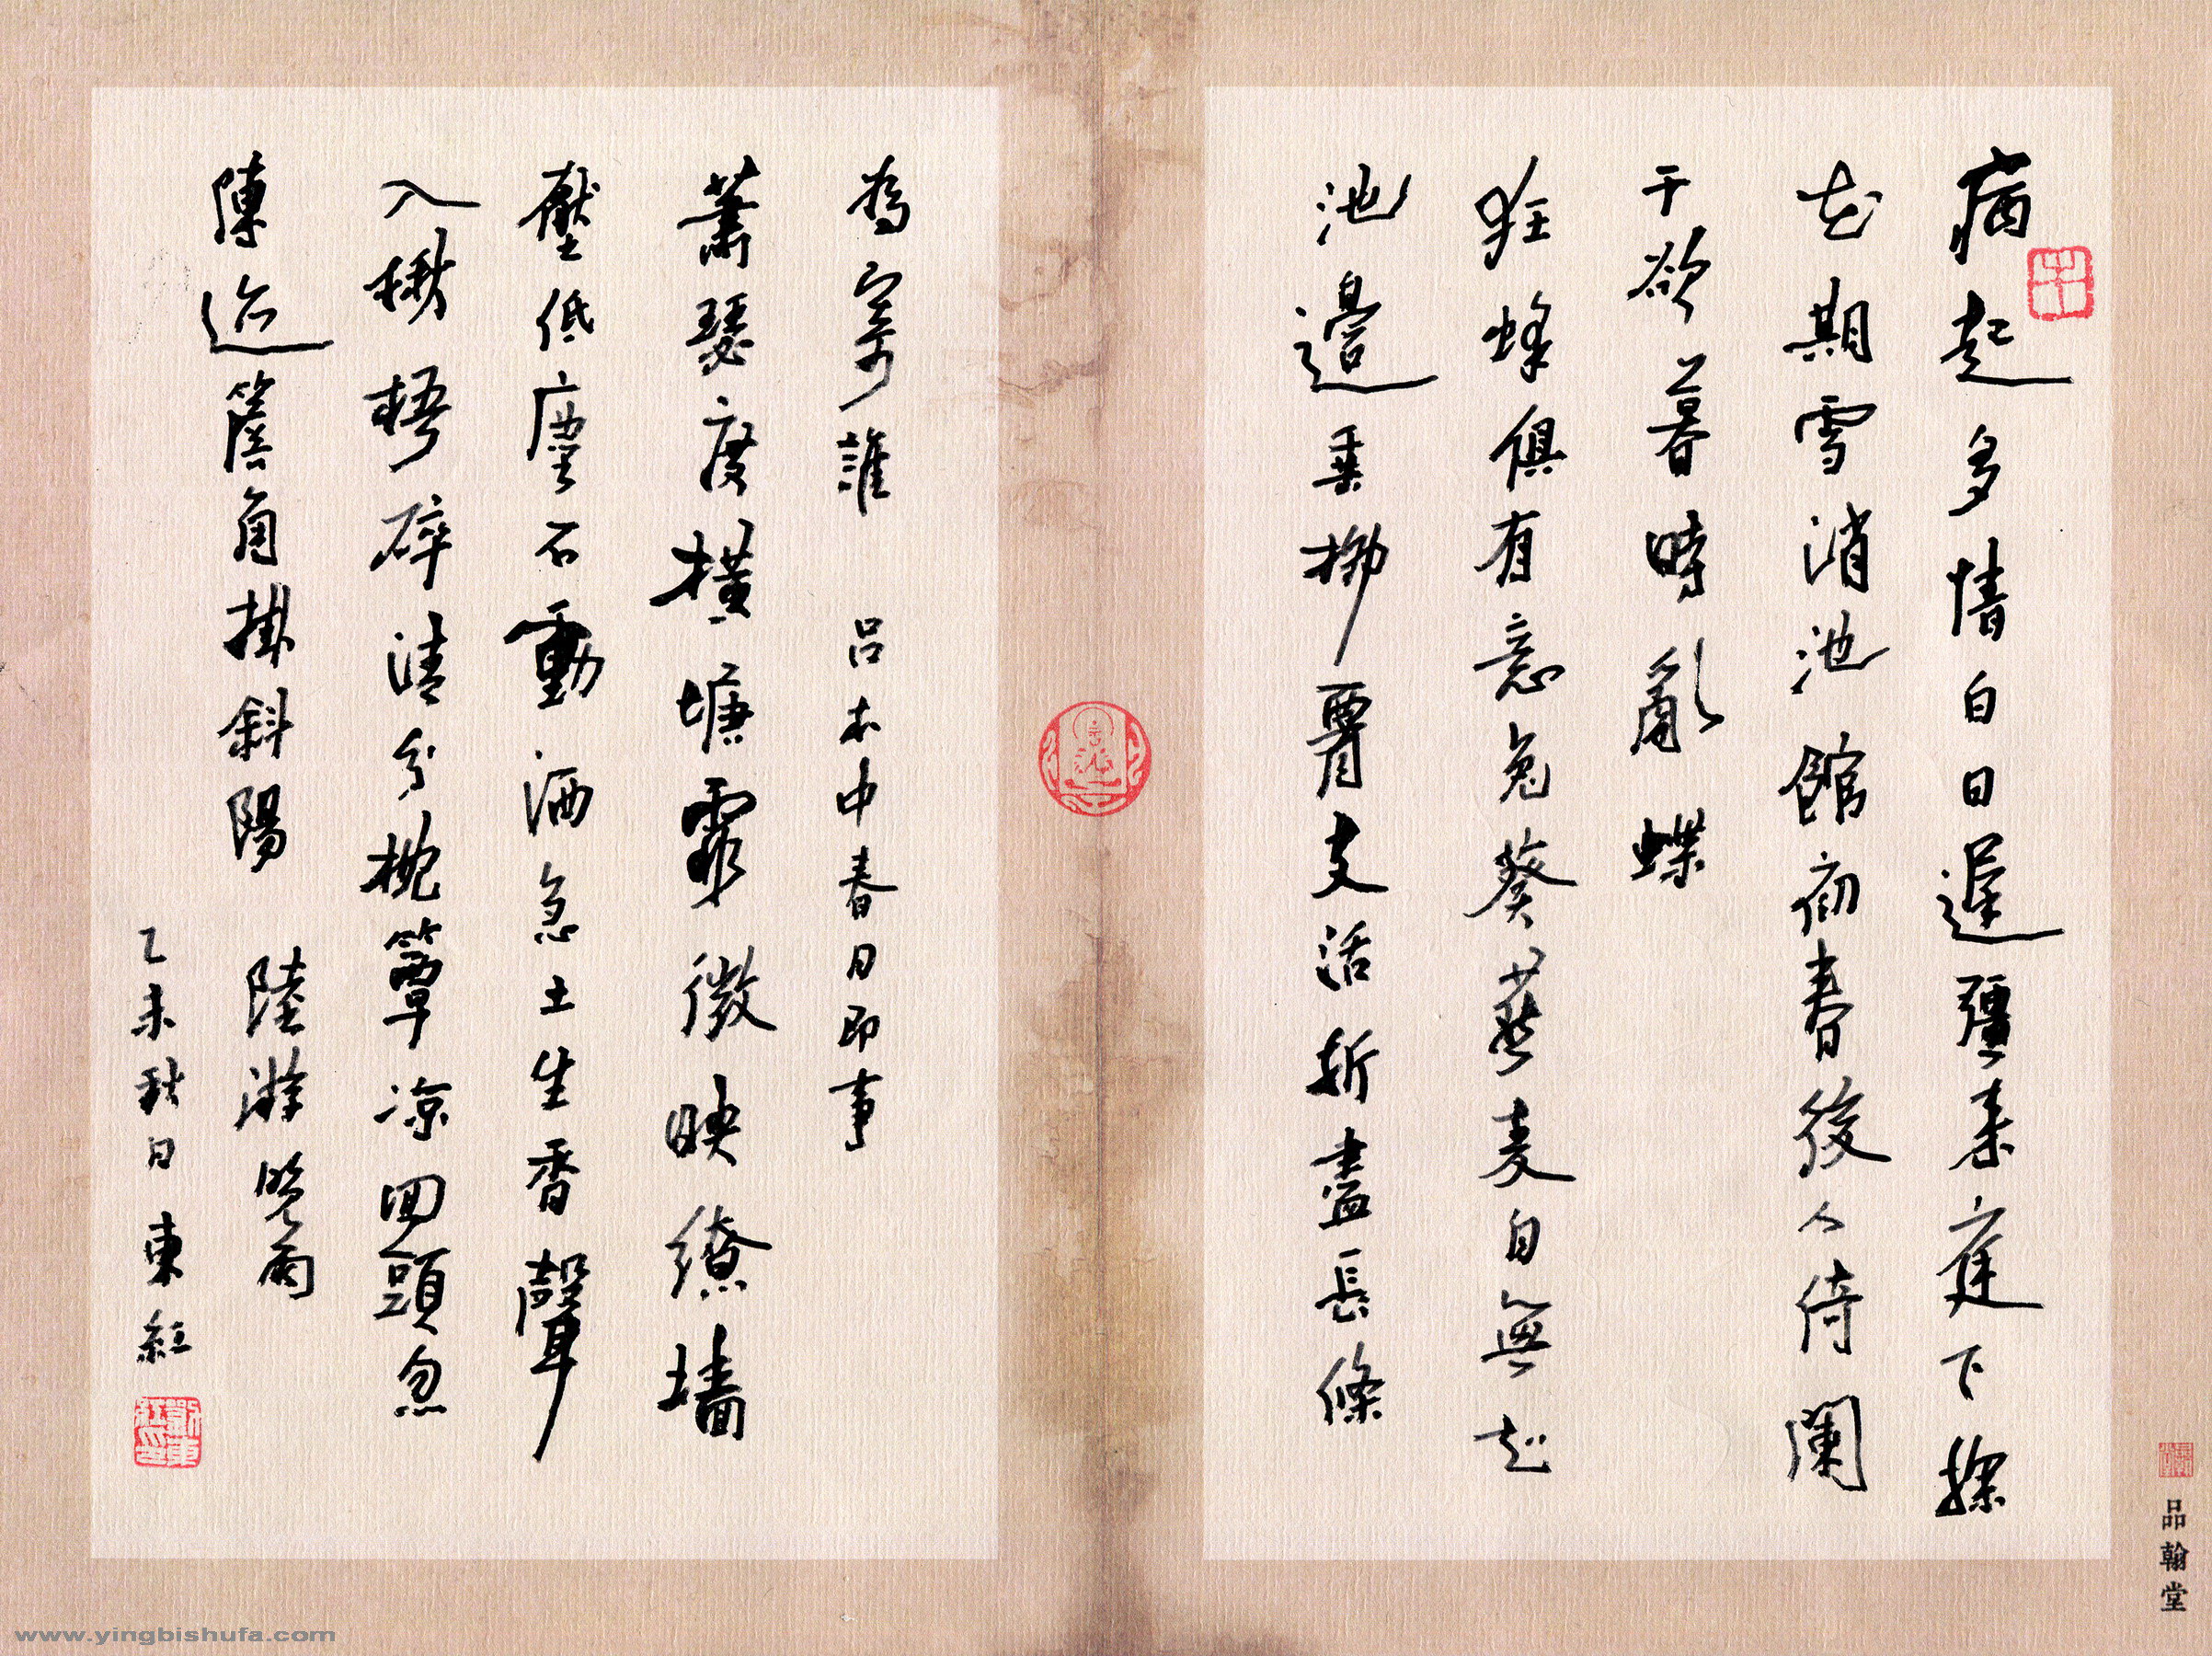 病起多情白日遲彊来庭下探
花期雪消池館初春後人倚闌
干欲暮時亂蝶
狂蜂俱有意兔葵燕麦自無知
池邊垂柳腰支活折盡長條
為寄誰 吕本中春日即事
蕭瑟度橫塘霏微映繚墙
壓低塵不動洒急土生香聲
入楸梧碎清分枕簟凉回頭忽
陳迹簷角掛斜陽 陸游晚雨
乙未秋日東紅
品翰堂
www.yingbishufa.com